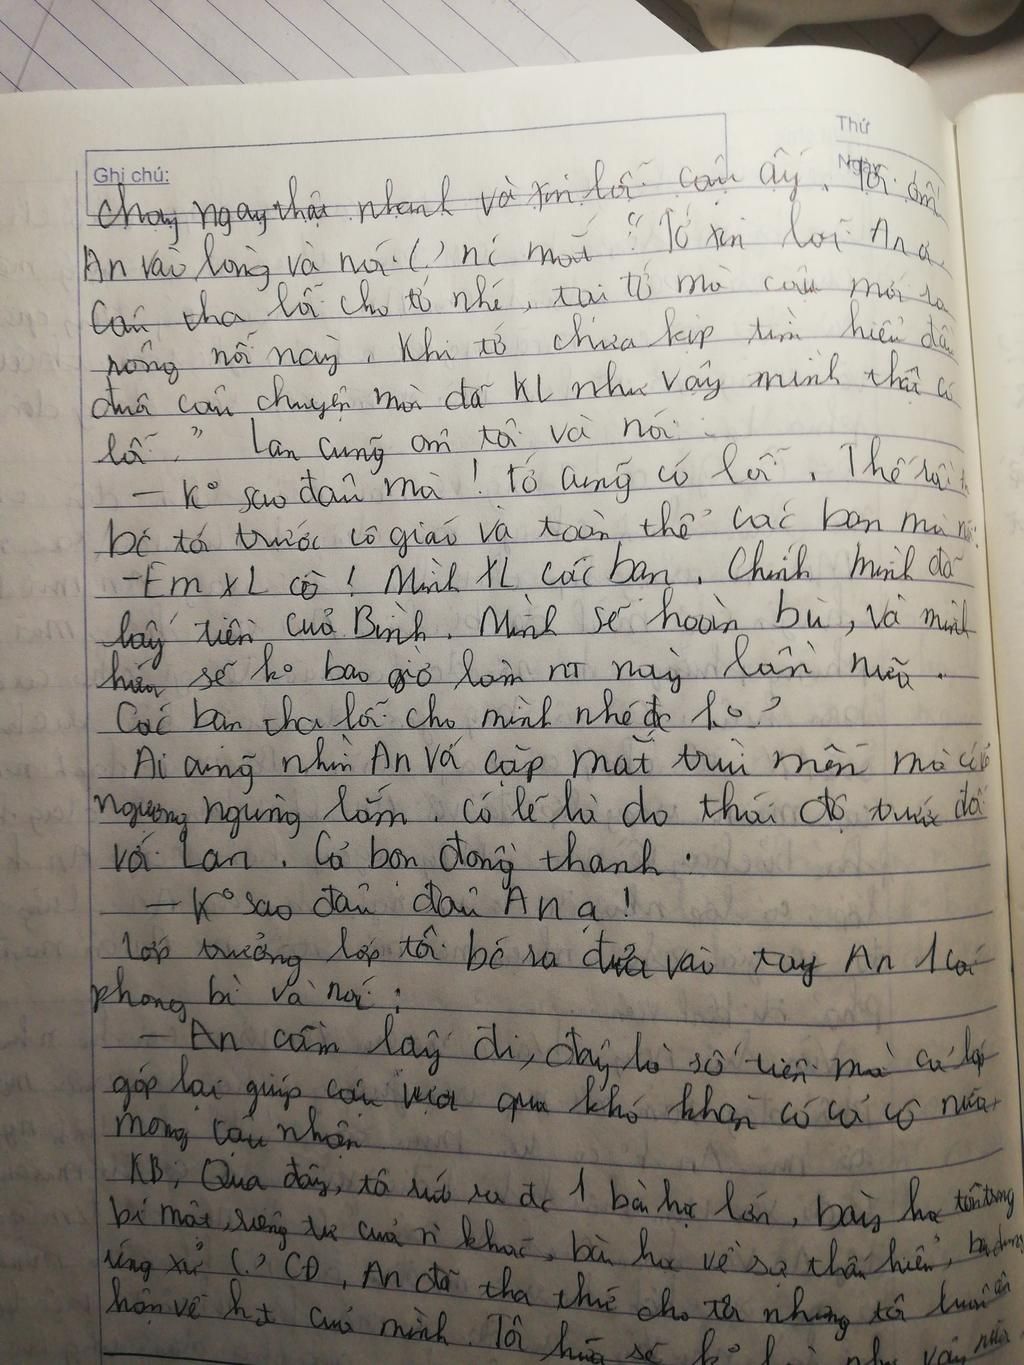 Thứ
Ghi chú:
Ngày
chạy ngay thật nhanh và xin lỗi cậu ấy. Tôi ôm
An vào lòng và nói () nc mắt "Tớ xin lỗi An ạ
Cậu tha lỗi cho tớ nhé, tại tớ mà cậu mới ra
nông nỗi này. Khi tớ chưa kịp tìm hiểu đầu
đuôi câu chuyện mà đã KL như vậy mình thật có
lỗi." Lan cũng ôm tôi và nói:
- K° sao đâu mà! Tớ cũng có lỗi. Thế rồi
bc tới trước cô giáo và toàn thể các bạn mà nói:
- Em XL cô! Mình XL các bạn. Chính mình đã
lấy tiền của Bình. Mình sẽ hoàn bù, và mình
hứa sẽ k° bao giờ làm nt này lần nữa.
Các bạn tha lỗi cho mình nhé đc k°?
Ai cũng nhìn An với cặp mắt trìu mến mà có lẽ
ngượng ngùng lắm. Có lẽ là do thái độ trước đó
với Lan. Cả bọn đồng thanh:
- K° sao đâu đâu An ạ!
Lớp trưởng lớp tôi bc ra đưa vào tay An 1 cái
phong bì và nói:
- An cầm lấy đi, đây là số tiền mà cả lớp
góp lại giúp cậu vượt qua khó khăn có cả cô nữa
mong cậu nhận
KB: Qua đây, tôi rút ra đc 1 bài học lớn, bài học tôn trọng
bí mật, riêng tư của ng khác, bài học về sự thấu hiểu,
ứng xử () CĐ, An đã tha thứ cho tôi nhưng tôi luôn ân
hận về hđ của mình. Tôi hứa sẽ k° như vậy nữa